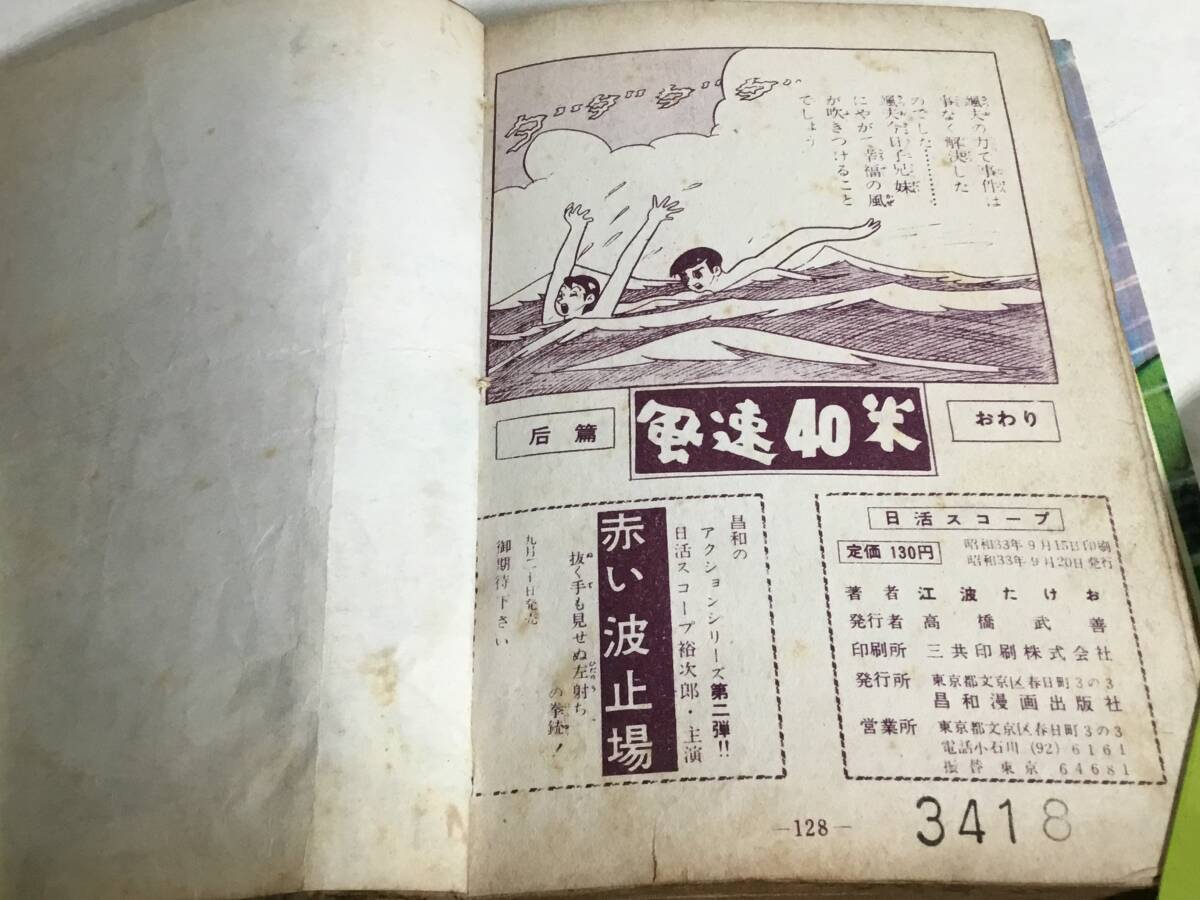 颯夫の力で事件は
事なく解決した
のでした………
颯夫今日子兄妹
にやがて幸福の風
が吹きつけること
でしょう
おわり
風速40米
后篇
日活スコープ
定価 130円
昭和33年9月15日印刷
昭和33年9月20日発行
著者 江波たけお
発行者 高橋武善
印刷所 三共印刷株式会社
発行所 東京都文京区春日町3の3
昌和漫画出版社
営業所 東京都文京区春日町3の3
電話小石川 (92) 6161
振替東京 64681
昌和の
アクションシリーズ第二弾!!
日活スコープ裕次郎・主演
赤い波止場
抜く手も見せぬ左射ち
の拳銃!
九月二十日発売
御期待下さい
—128—
3418